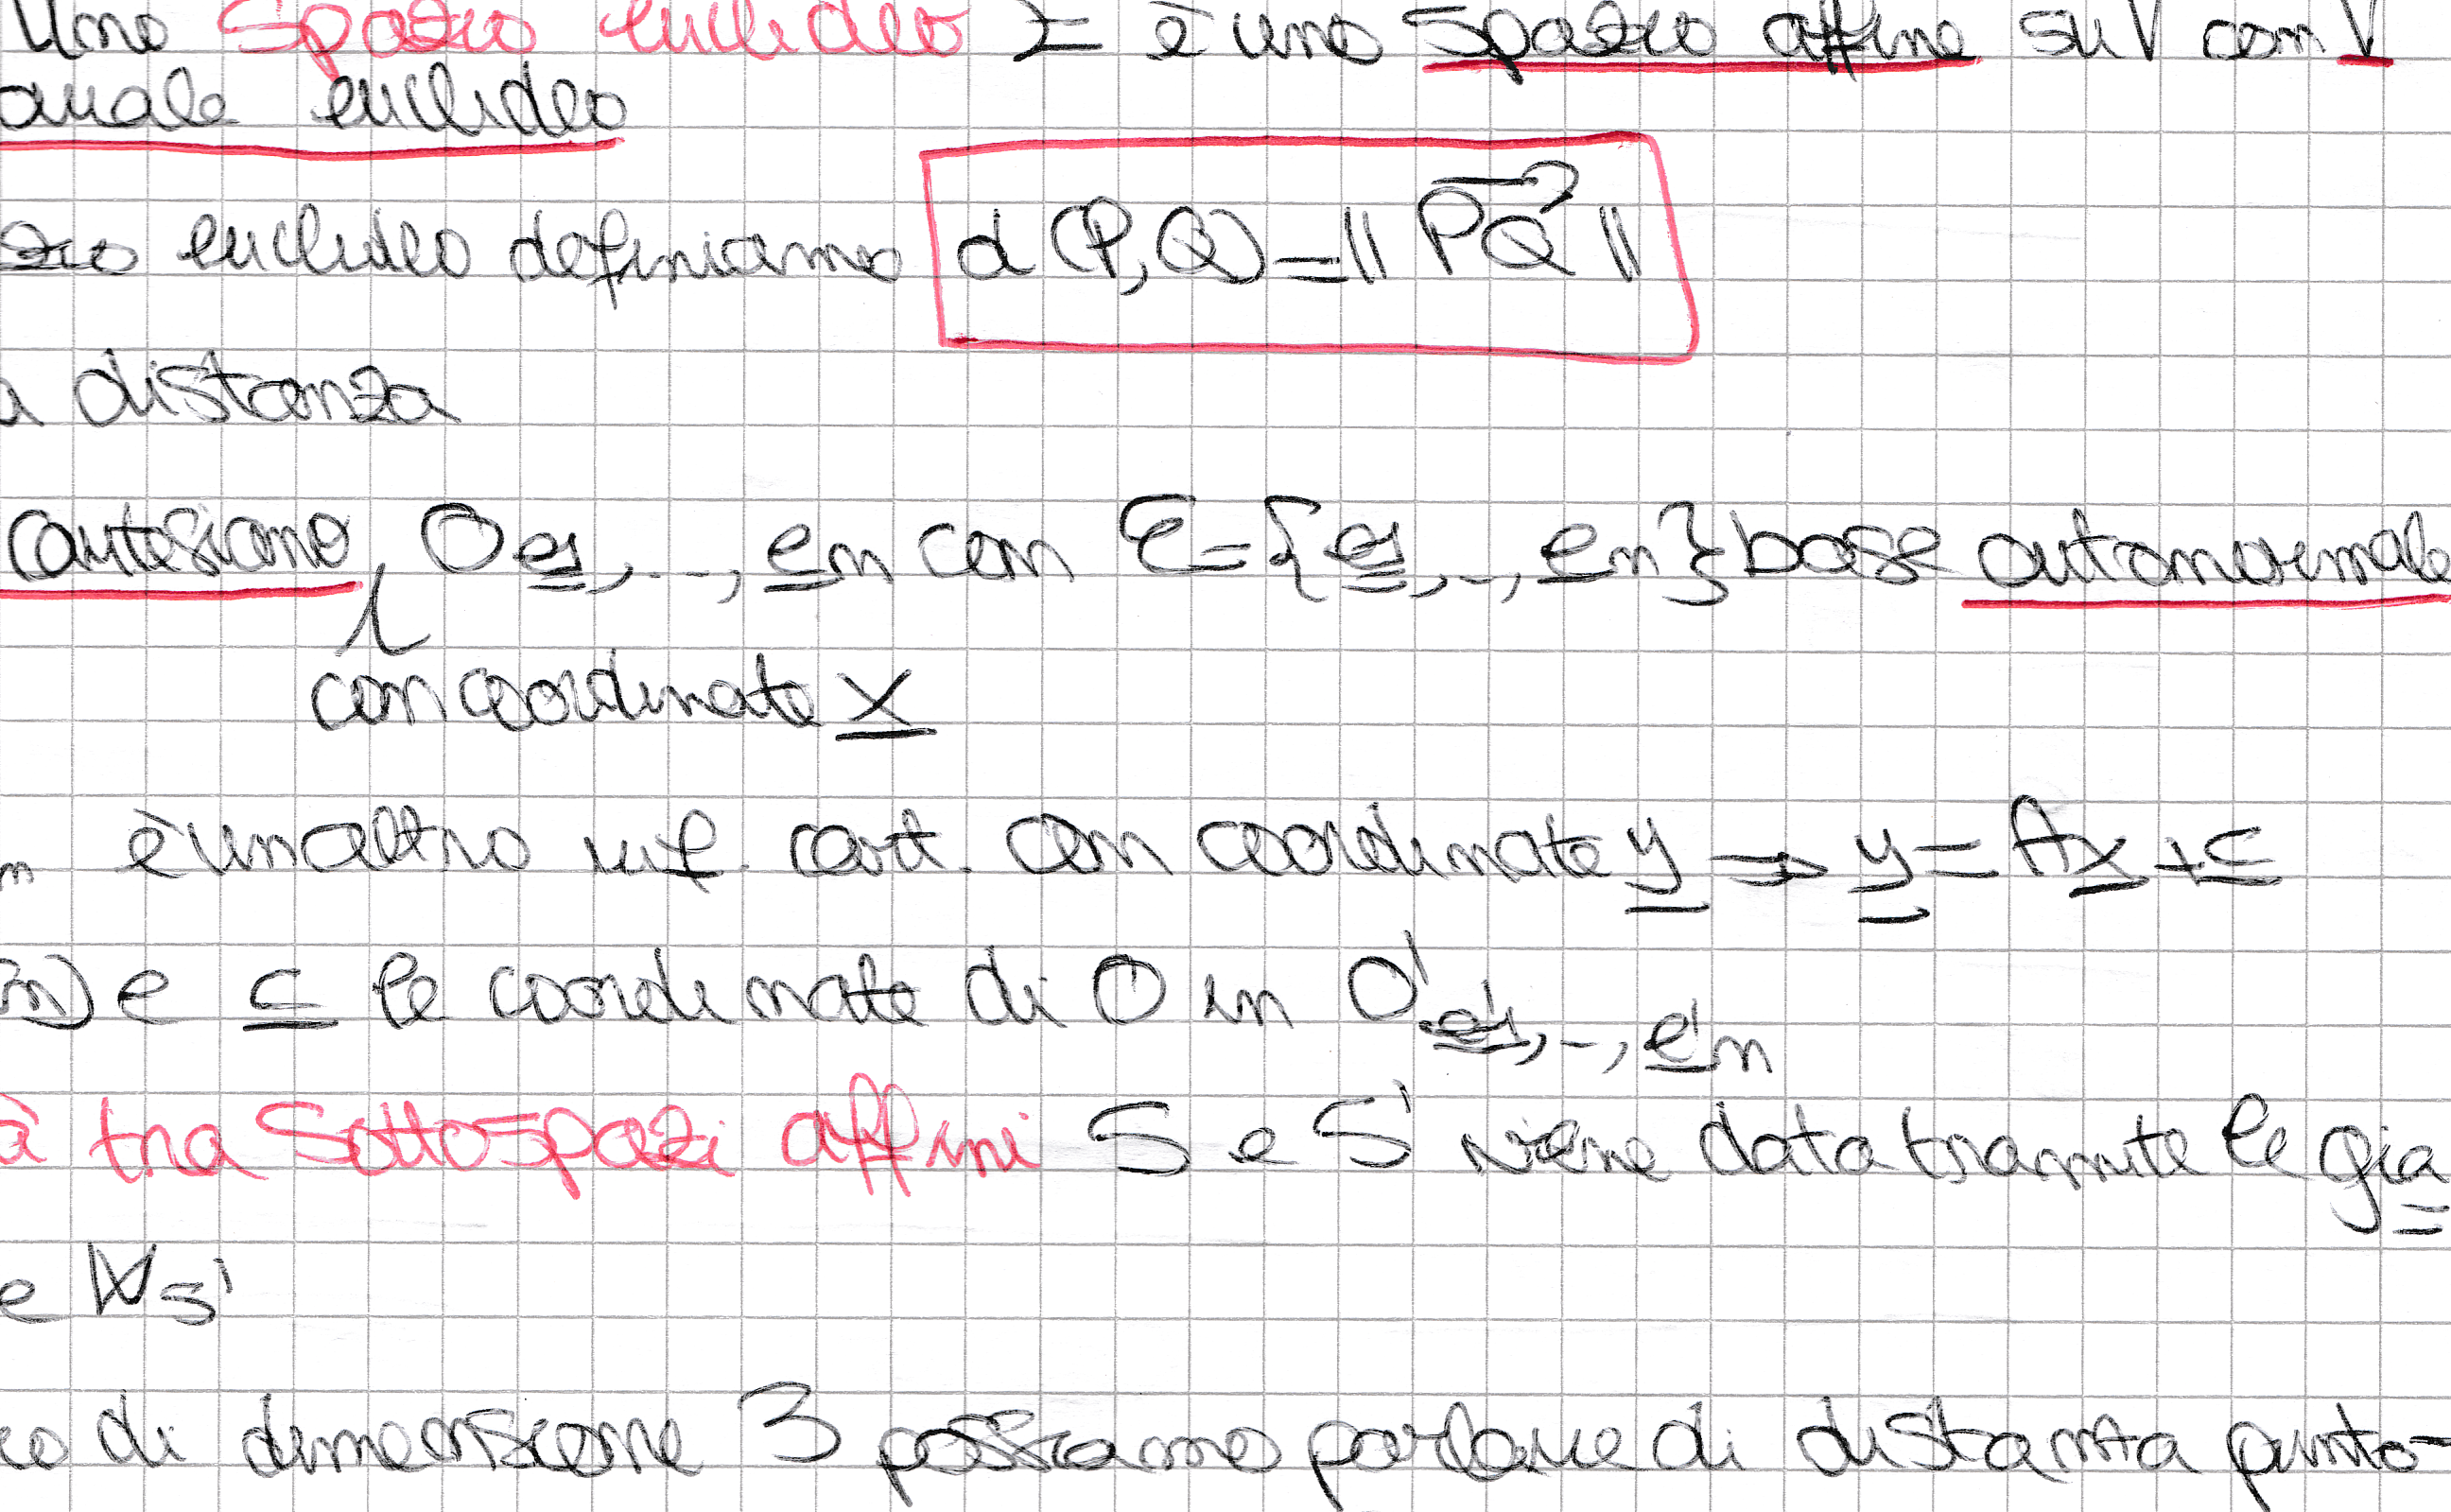 Uno spazio euclideo Σ è uno spazio affine su V con V
euclideo
euclideo definiamo d(P,Q)=||\overrightarrow{PQ}||
distanza
cartesiano, O e1,..., en con E={e1,..., en} base ortonormale
con coordinate x
n è un altro rif. cart. con coordinate y ⇒ y = Ax + c
e c le coordinate di O in O' e'1,..., e'n
à tra sottospazi affini S e S' viene data tramite le già
e W_S'
co di dimensione 3 possiamo parlare di distanza punto-